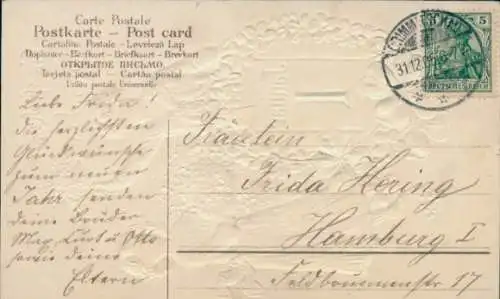 Carte Postale
Postkarte – Post card
Cartolina Postale – Levelezö Lap
Dopisnice – Brefkort – Briefkaart – Brevkort
ОТКРЫТОЕ ПИСЬМО.
Tarjeta postal – Cartão postal
Unión postale Universelle
31.12.
5
DEUTSCHES REICH
Liebe Frida!
die herzlichsten
Glückwünsche
zum neuen
Jahr senden
deine Brüder
Max, Curt u. Otto
sowie deine
Eltern
Fräulein
Frida Hering
Hamburg I
Feldbrunnenstr 17